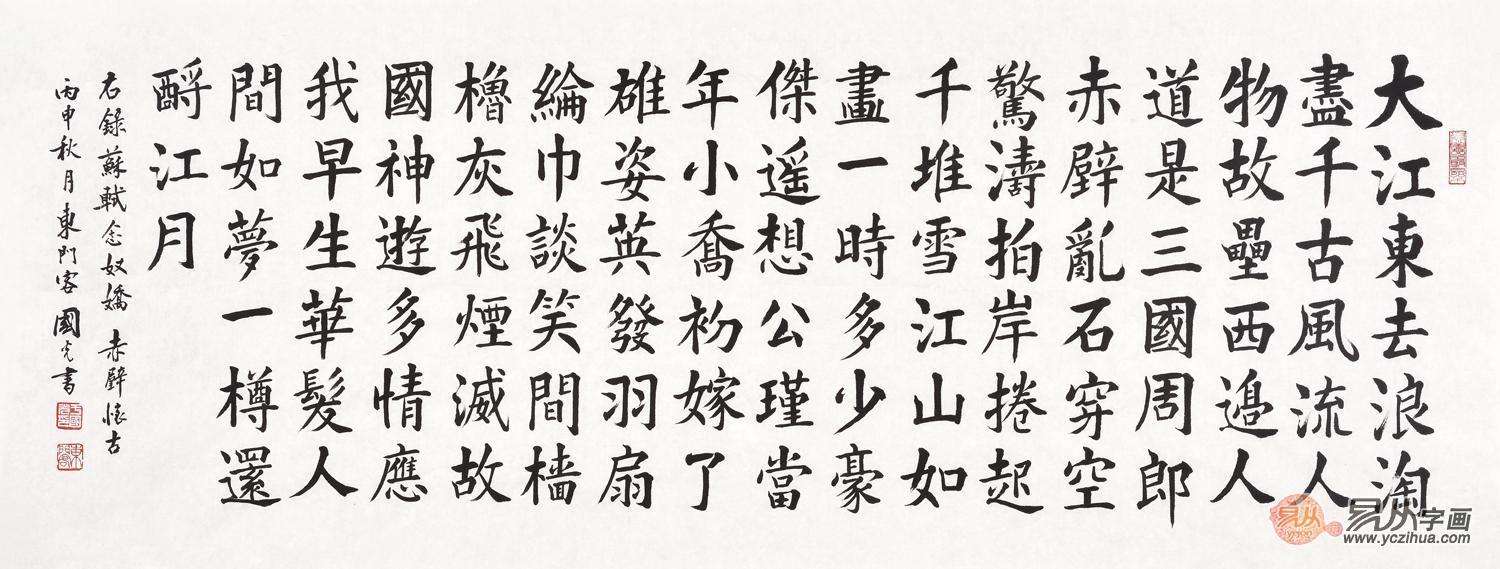 大江東去浪淘
盡千古風流人
物故壘西邊人
道是三國周郎
赤壁亂石穿空
驚濤拍岸捲起
千堆雪江山如
畫一時多少豪
傑遥想公瑾當
年小喬初嫁了
雄姿英發羽扇
綸巾談笑間檣
櫓灰飛煙滅故
國神遊多情應
我早生華髮人
間如夢一樽還
酹江月
右錄蘇軾念奴嬌 赤壁懷古
丙申秋月東門客國光書
易从
易从字画
www.yczihua.com